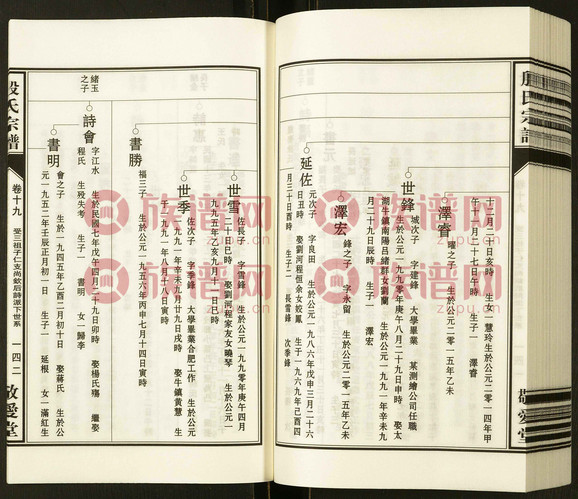 殷氏宗譜
敬愛堂
十二月二十日亥時　生女一　慧玲生於公元二零一四年甲
午十一月二十七日午時　生子一　澤睿
澤睿
曜之子　生於公元二零一五年乙未
世鋒
城次子　字建鋒　大學畢業　某測繪公司任職
生於公元一九九零年庚午八月二十九日申時　娶太
湖牛鎮南陽呂緒群女劉蘭　生於公元一九九一年辛未九
月二十九日辰時　生子一　澤宏
澤宏
鋒之子　字永留　生於公元二零一五年乙未
延佐
元次子　字良田　生於公元一九八六年戊申三月二十六
日丑時　娶劉河程恒余女蛟鳳　生于一九六九年己酉四
月三十日酉時　生子二　長雪鋒　次季鋒
世雪
佐長子　字雪鋒　生於公元一九九零年庚午四月
二十日巳時　娶劉河程家友女曉琴　生於公元一
九九五年乙亥九月十一日巳時
世季
佐次子　字季鋒　大學畢業合肥工作　生於公元
一九九一年辛未九月廿九日戌時　娶牛鎮黄慧　生
于一九九一年八月十八日寅時
書勝
福三子　生於公元一九五六年丙申七月十四日寅時
緒玉
之子
詩會
字江水　生於民國七年戊午四月二十九日卯時　娶楊氏殤　繼娶
程氏　生殁失考　生子一　書明　女一歸李
書明
會之子　生於一九四五年乙酉二月初十日　娶蔣氏　生於公
元一九五二年壬辰正月初一日　生子一　延根　女一滿紅生
殷氏宗譜
卷十九
受三祖子仁支尚欽后詩派下世系
一四二
敬愛堂
族谱网
zupu.cn
族谱网
zupu.cn
族谱网
zupu.cn
族谱网
zupu.cn